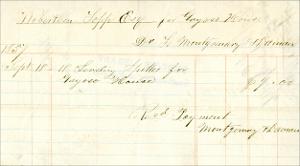 Robertson Topp Esq for Gayoso House
To Montgomery & Farmer
1857
Sept 18 for
Gayoso House 69.00
Recd Payment
Montgomery & Farmer